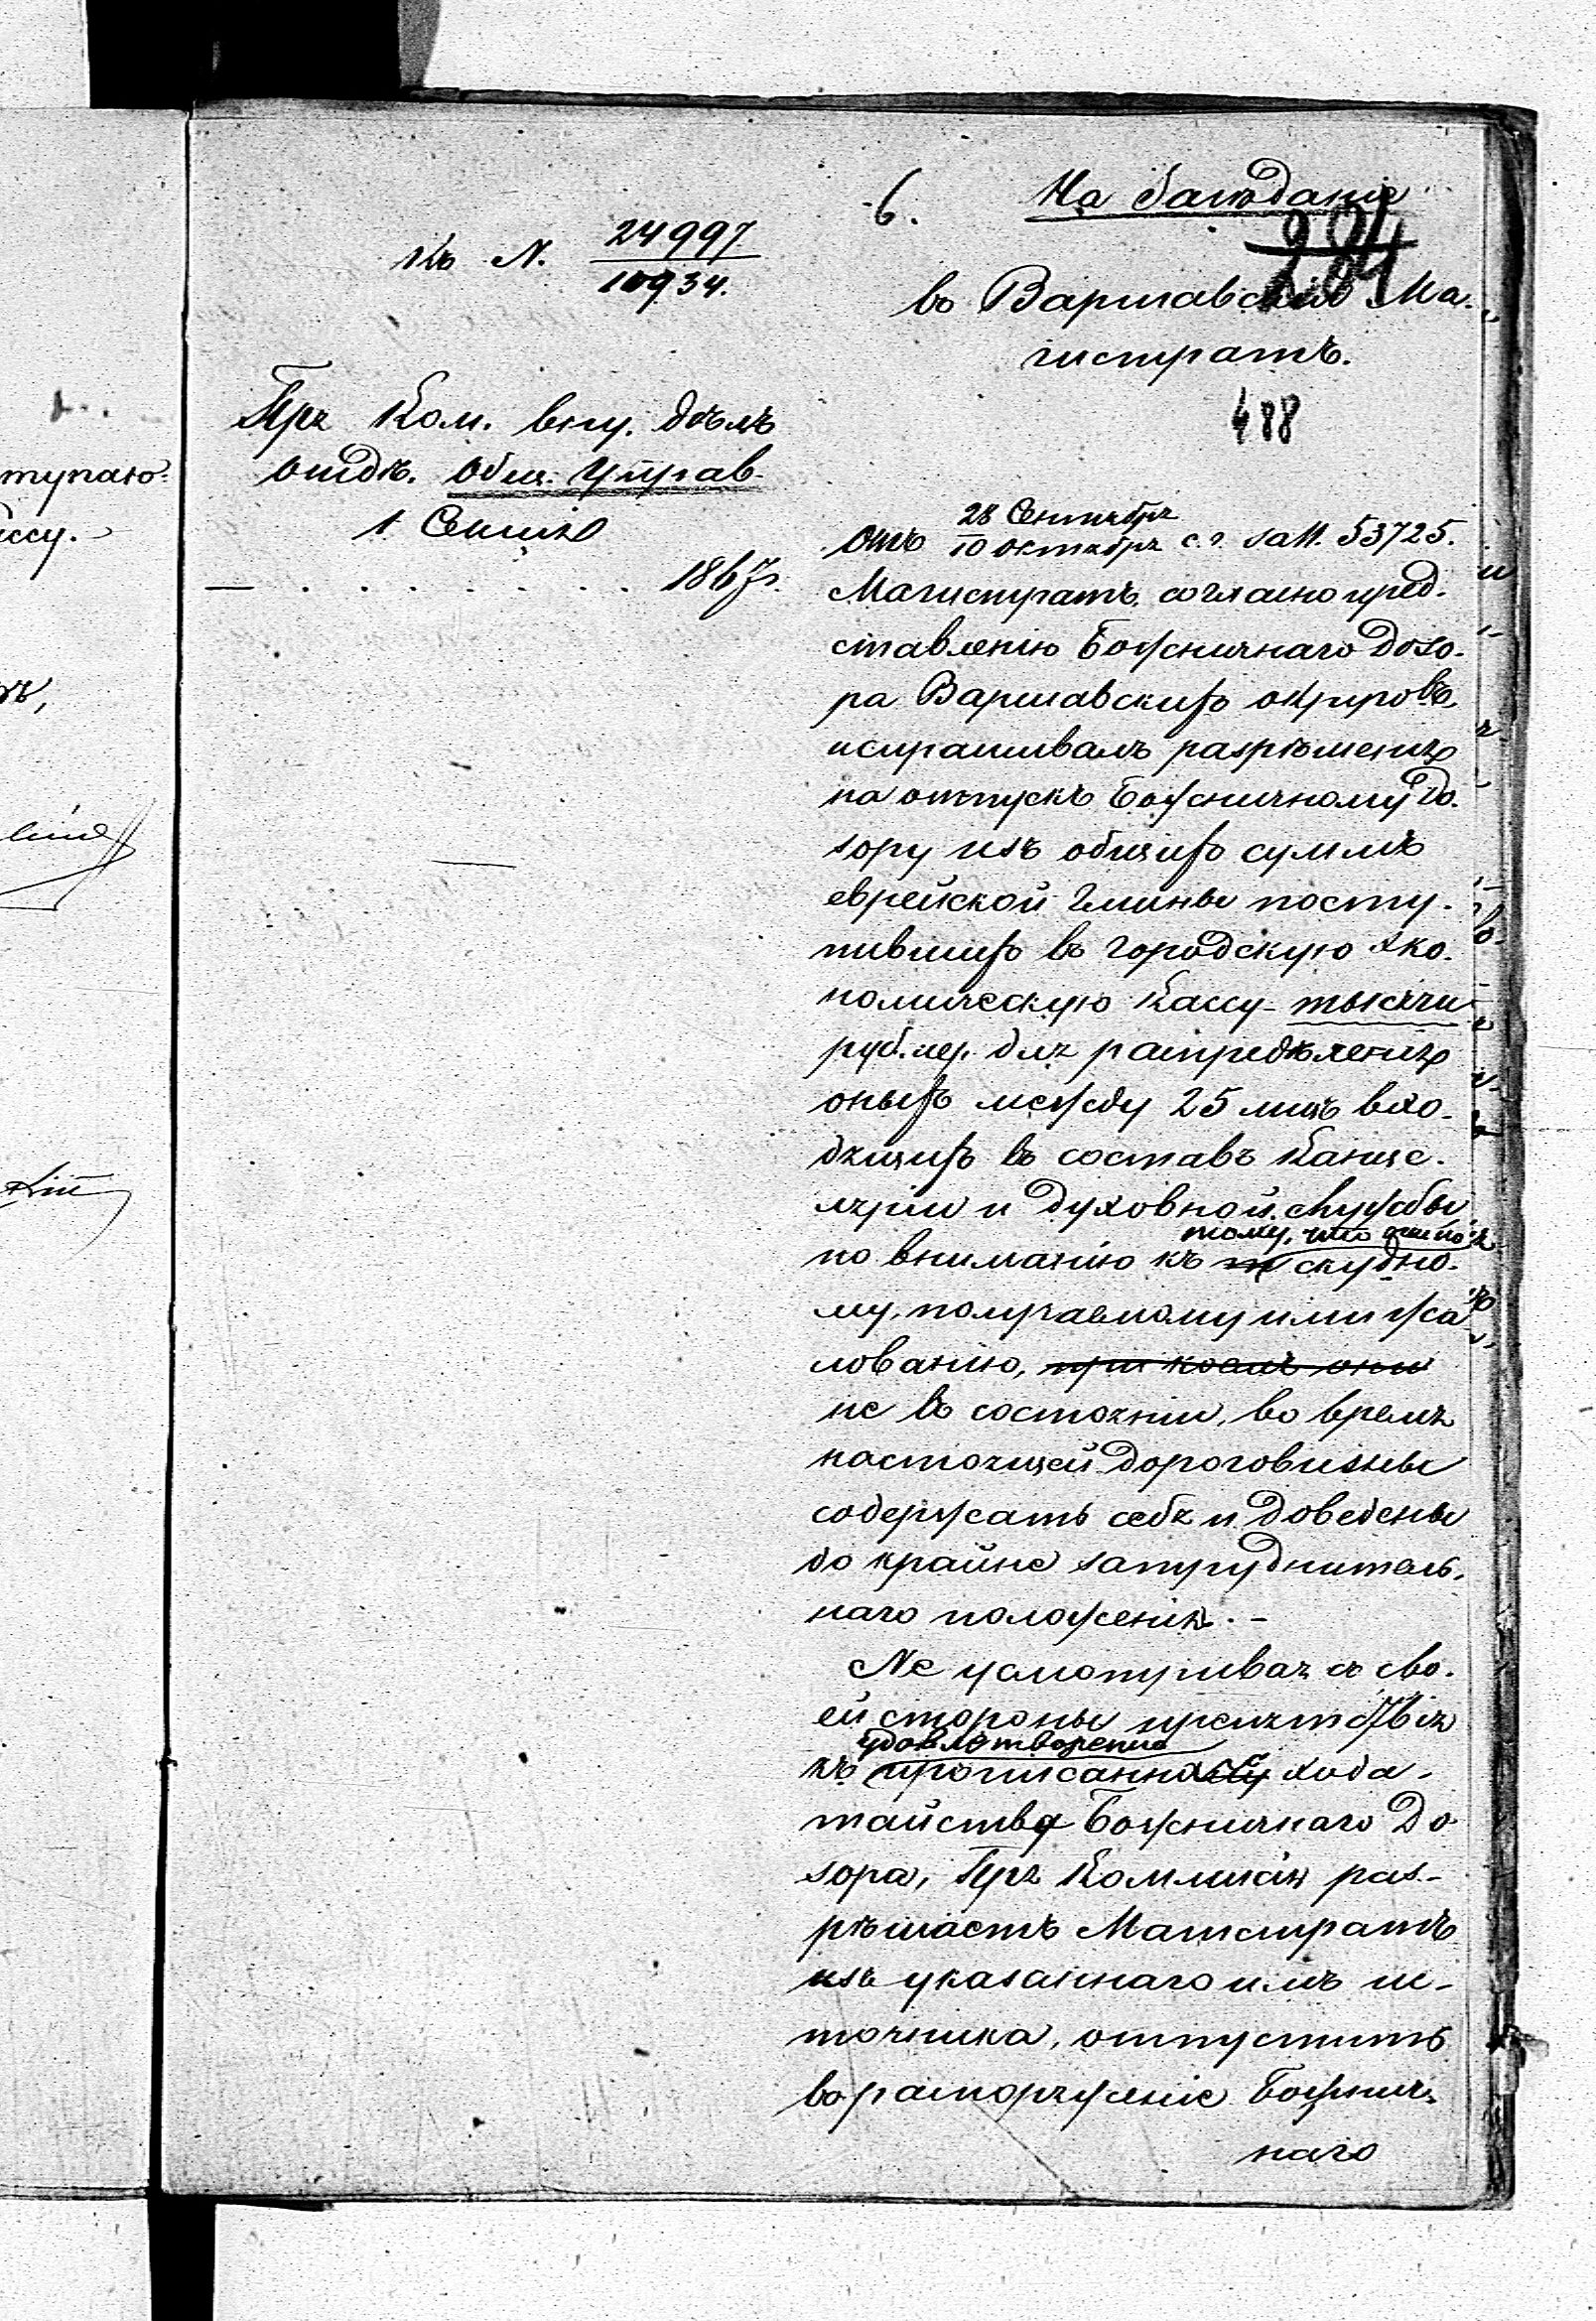 6.
къ N. 24997
10934.
204
въ Варшавскій Ма-
гистратъ.
488
Пр. Ком. вну. дѣлъ
отдѣ. Общ. Управ.
1 Секція
1867 г.
отъ 28 Сентября / 10 октября с. г. за N. 53725.
Магистратъ, согласно пред-
ставленію Божничнаго Дозо-
ра Варшавскихъ округовъ,
испрашивалъ разрѣшенія
на отпускъ Божничному До-
зору изъ общихъ суммъ
еврейской гмины посту-
пившихъ въ городскую эко-
номическую Кассу - тысячи
руб. сер. для распредѣленія
оныхъ между 25 лицъ вхо-
дящихъ въ составъ Канце-
ляріи и духовной службы
тому, что они по
по вниманію къ скудно-
му, получаемому ими жа-
лованію, при коемъ они
не въ состояніи, во время
настоящей дороговизны
содержать себя и доведены
до крайне затруднитель-
наго положенія. -
Не усмотривая съ сво-
ей стороны препятствія
удовлетворенію
къ прописанно хода-
тайства Божничнаго До-
зора, Пр. Коммисія раз-
рѣшаетъ Магистратъ
изъ указаннаго имъ ис-
точника, отпустить
въ распоряженіе Божнич-
наго
тупаю-
ссу. -